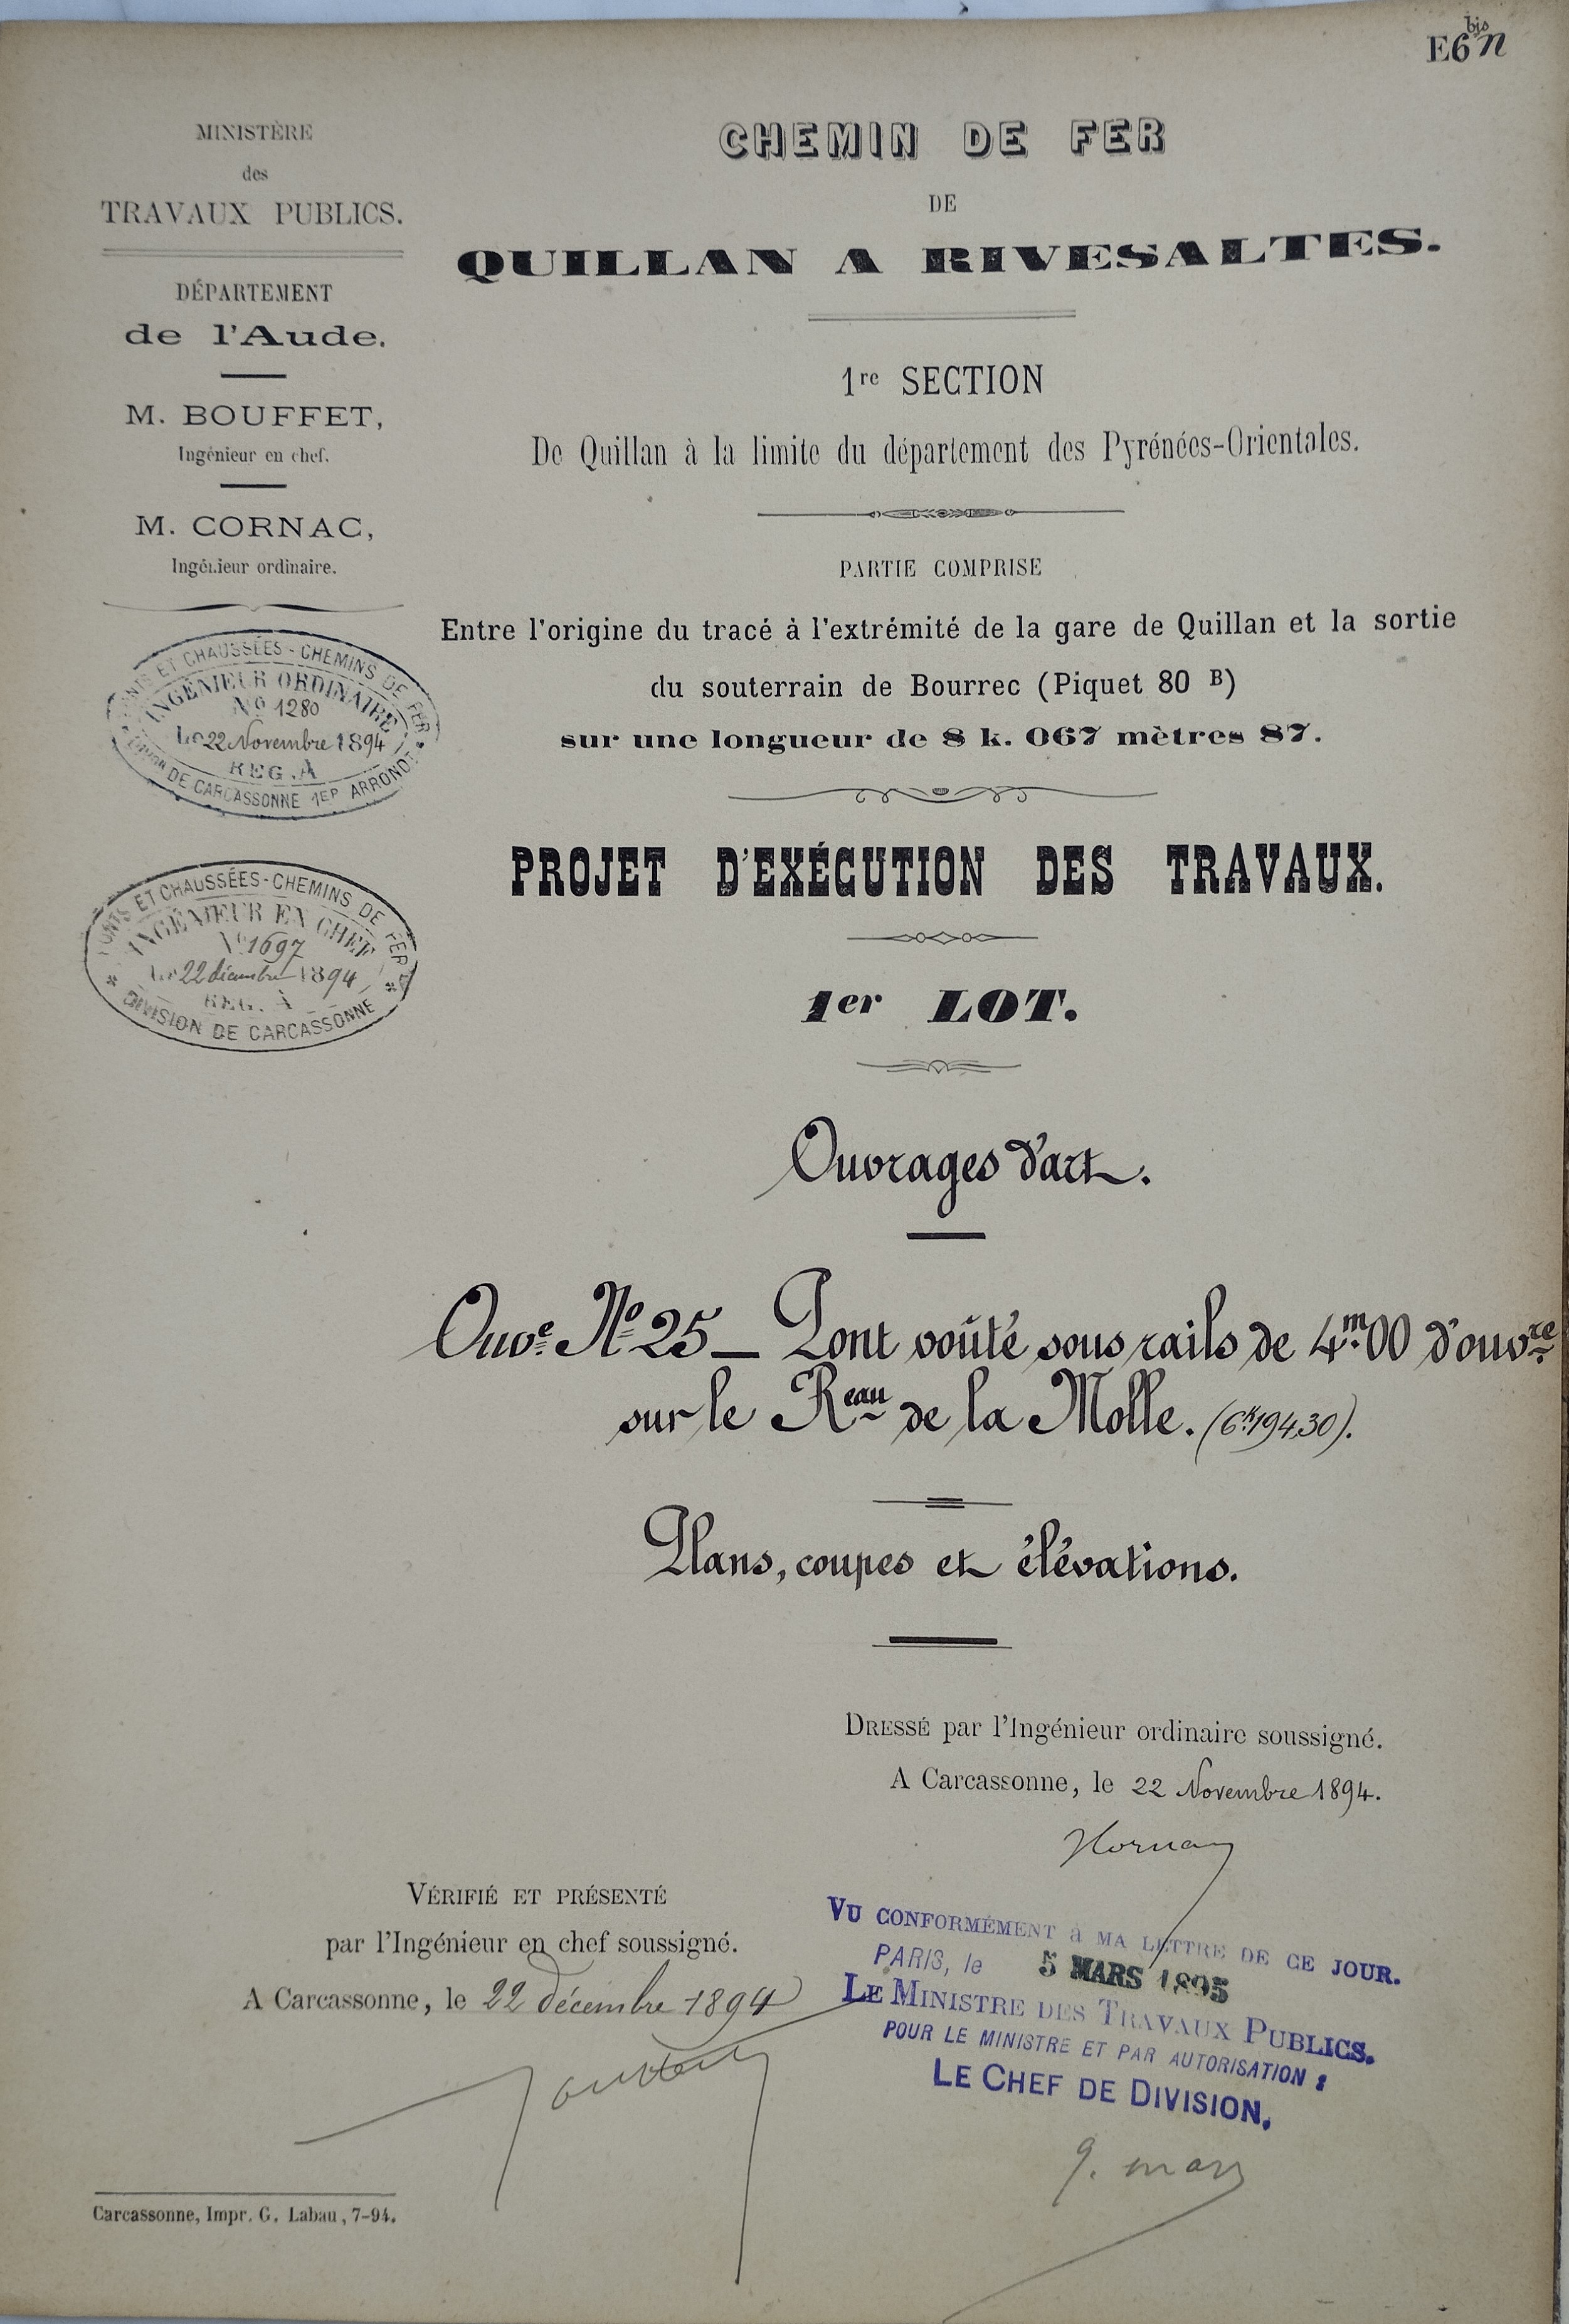 E6 bis n
MINISTÈRE
des
TRAVAUX PUBLICS.
DÉPARTEMENT
de l'Aude.
M. BOUFFET,
Ingénieur en chef.
M. CORNAC,
Ingénieur ordinaire.
PONTS ET CHAUSSÉES - CHEMINS DE FER
INGÉNIEUR ORDINAIRE
No 1280
Le 22 Novembre 1894
REG. A
DIVISION DE CARCASSONNE 1ER ARRONDT
PONTS ET CHAUSSÉES - CHEMINS DE FER
INGÉNIEUR EN CHEF
No 1697
Le 22 décembre 1894
REG. A
DIVISION DE CARCASSONNE
CHEMIN DE FER
DE
QUILLAN A RIVESALTES.
1re SECTION
De Quillan à la limite du département des Pyrénées-Orientales.
PARTIE COMPRISE
Entre l'origine du tracé à l'extrémité de la gare de Quillan et la sortie
du souterrain de Bourrec (Piquet 80 B)
sur une longueur de 8 k. 067 mètres 87.
PROJET D'EXÉCUTION DES TRAVAUX.
1er LOT.
Ouvrages d'art.
Ouve. No 25 _ Pont voûté sous rails de 4m.00 d'ouvre
sur le Reau de la Molle. (6k.194,30).
Plans, coupes et élévations.
DRESSÉ par l'Ingénieur ordinaire soussigné.
A Carcassonne, le 22 Novembre 1894.
VÉRIFIÉ ET PRÉSENTÉ
par l'Ingénieur en chef soussigné.
A Carcassonne, le 22 décembre 1894
VU CONFORMÉMENT à MA LETTRE DE CE JOUR.
PARIS, le 5 MARS 1895
LE MINISTRE DES TRAVAUX PUBLICS.
POUR LE MINISTRE ET PAR AUTORISATION :
LE CHEF DE DIVISION,
Carcassonne, Impr. G. Labau, 7-94.